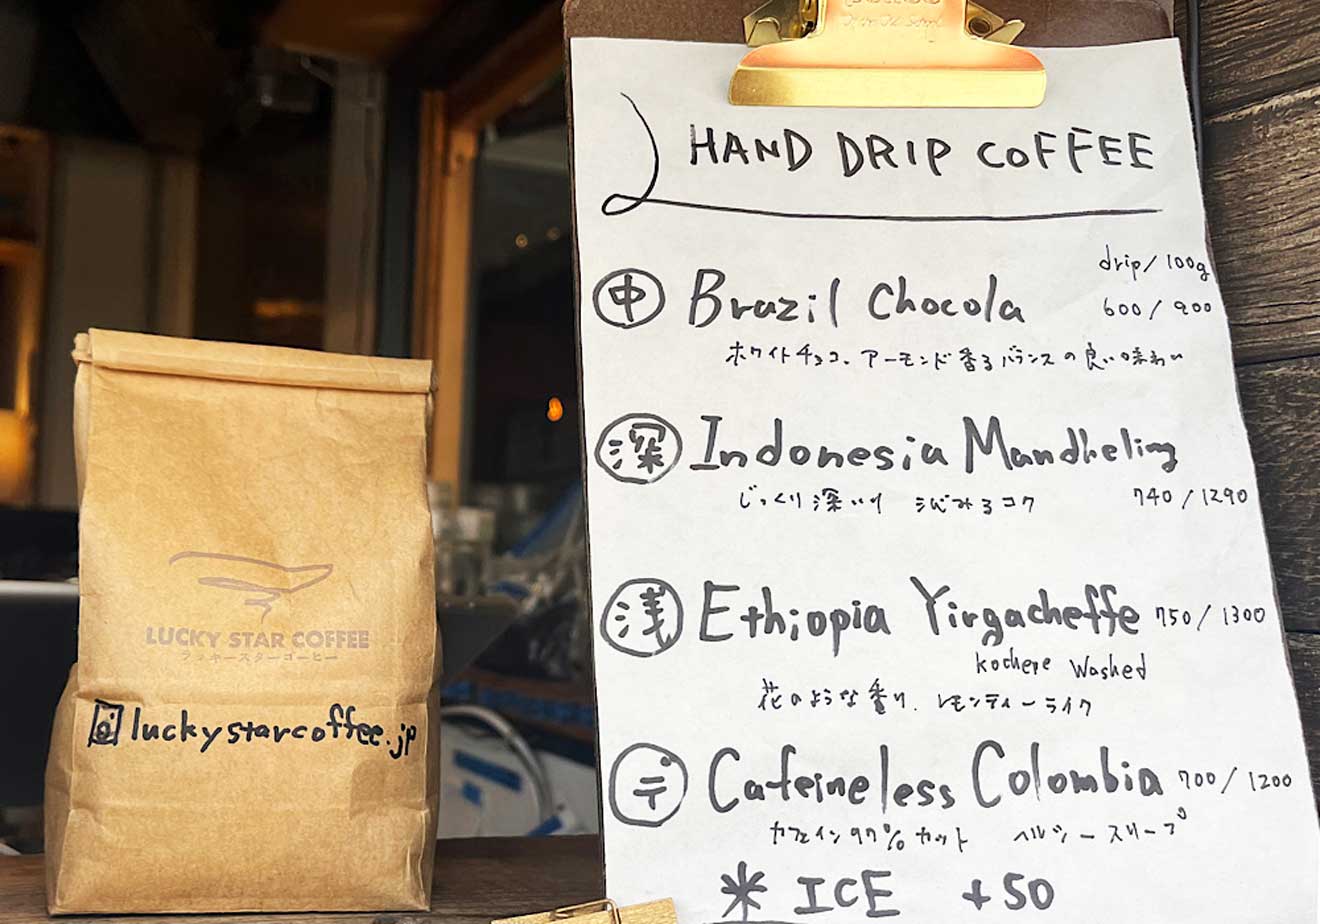 HAND DRIP COFFEE
drip/100g
中 Brazil Chocola 600/900
ホワイトチョコ、アーモンド香るバランスの良い味わい
深 Indonesia Mandheling
じっくり深いり しびみるコク 740/1290
浅 Ethiopia Yirgacheffe 750/1300
kochere Washed
花のような香り、レモンティーライク
デ Cafeineless Colombia 700/1200
カフェイン97%カット ヘルシースリープ
* ICE +50
LUCKY STAR COFFEE
ラッキースターコーヒー
luckystarcoffee.jp